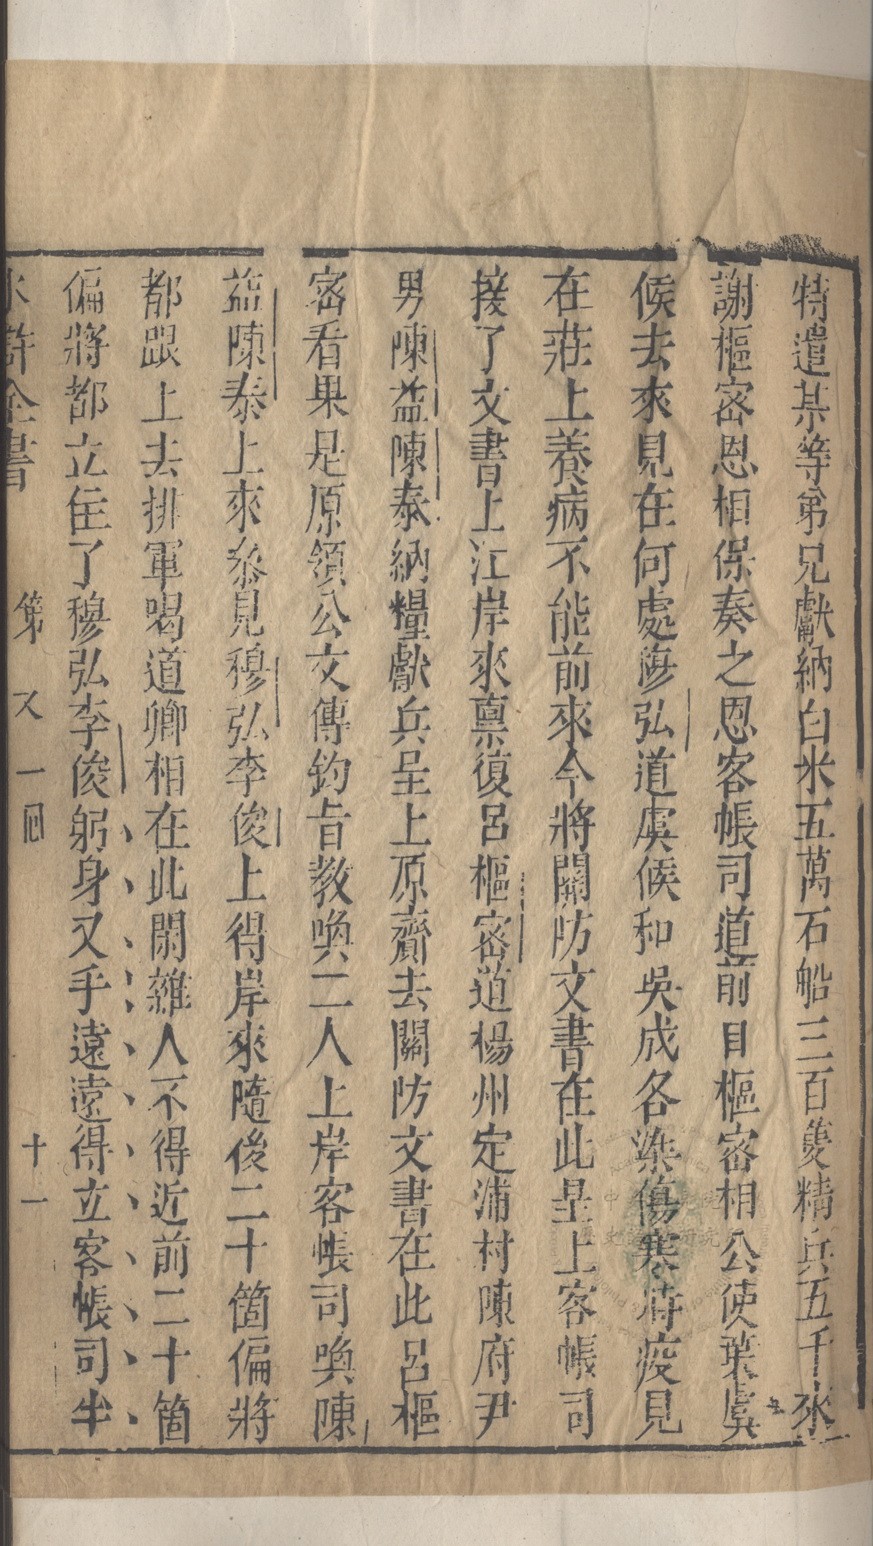 特遣某等弟兄獻納白米五萬石船三百隻精兵五千來
謝樞密恩相保奏之恩客帳司道前日樞密相公使葉虞
候去來見在何處穆弘道虞候和吳成各染傷寒時疫見
在莊上養病不能前來今將關防文書在此呈上客帳司
接了文書上江岸來稟復呂樞密道楊州定浦村陳府尹
男陳益陳泰納糧獻兵呈上原齎去關防文書在此呂樞
密看果是原領公文傳鈞旨教喚二人上岸客帳司喚陳
益陳泰上來叅見穆弘李俊上得岸來隨後二十箇偏將
都跟上去排軍喝道卿相在此閒雜人不得近前二十箇
偏將都立住了穆弘李俊躬身叉手遠遠得立客帳司半
水滸全書 第 又 一回 十一